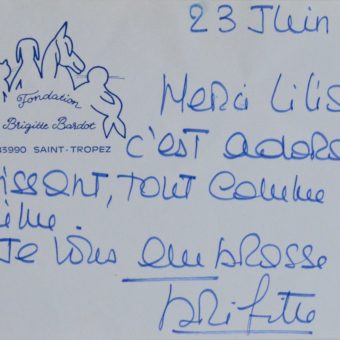 23 Juin
Fondation
Brigitte Bardot
83990 SAINT-TROPEZ
Merci Lilis
c'est adora
issant, tout comme
Je vous embrasse
Brigitte